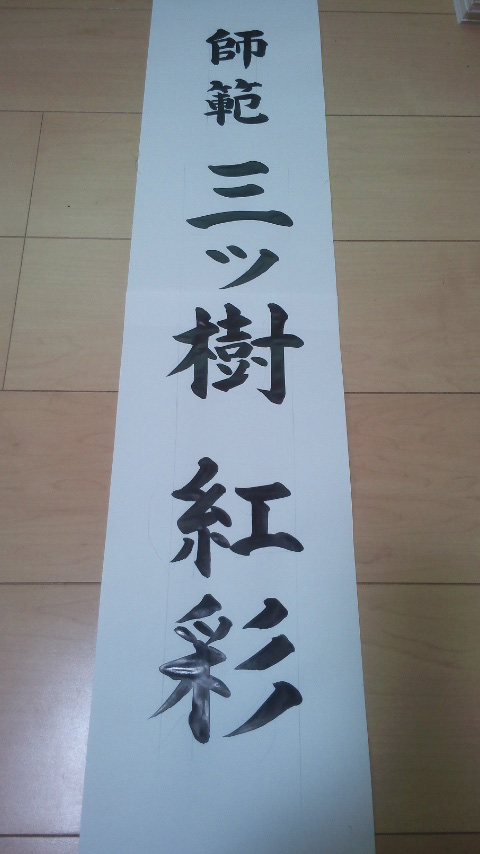 師範 三ッ樹 紅彩